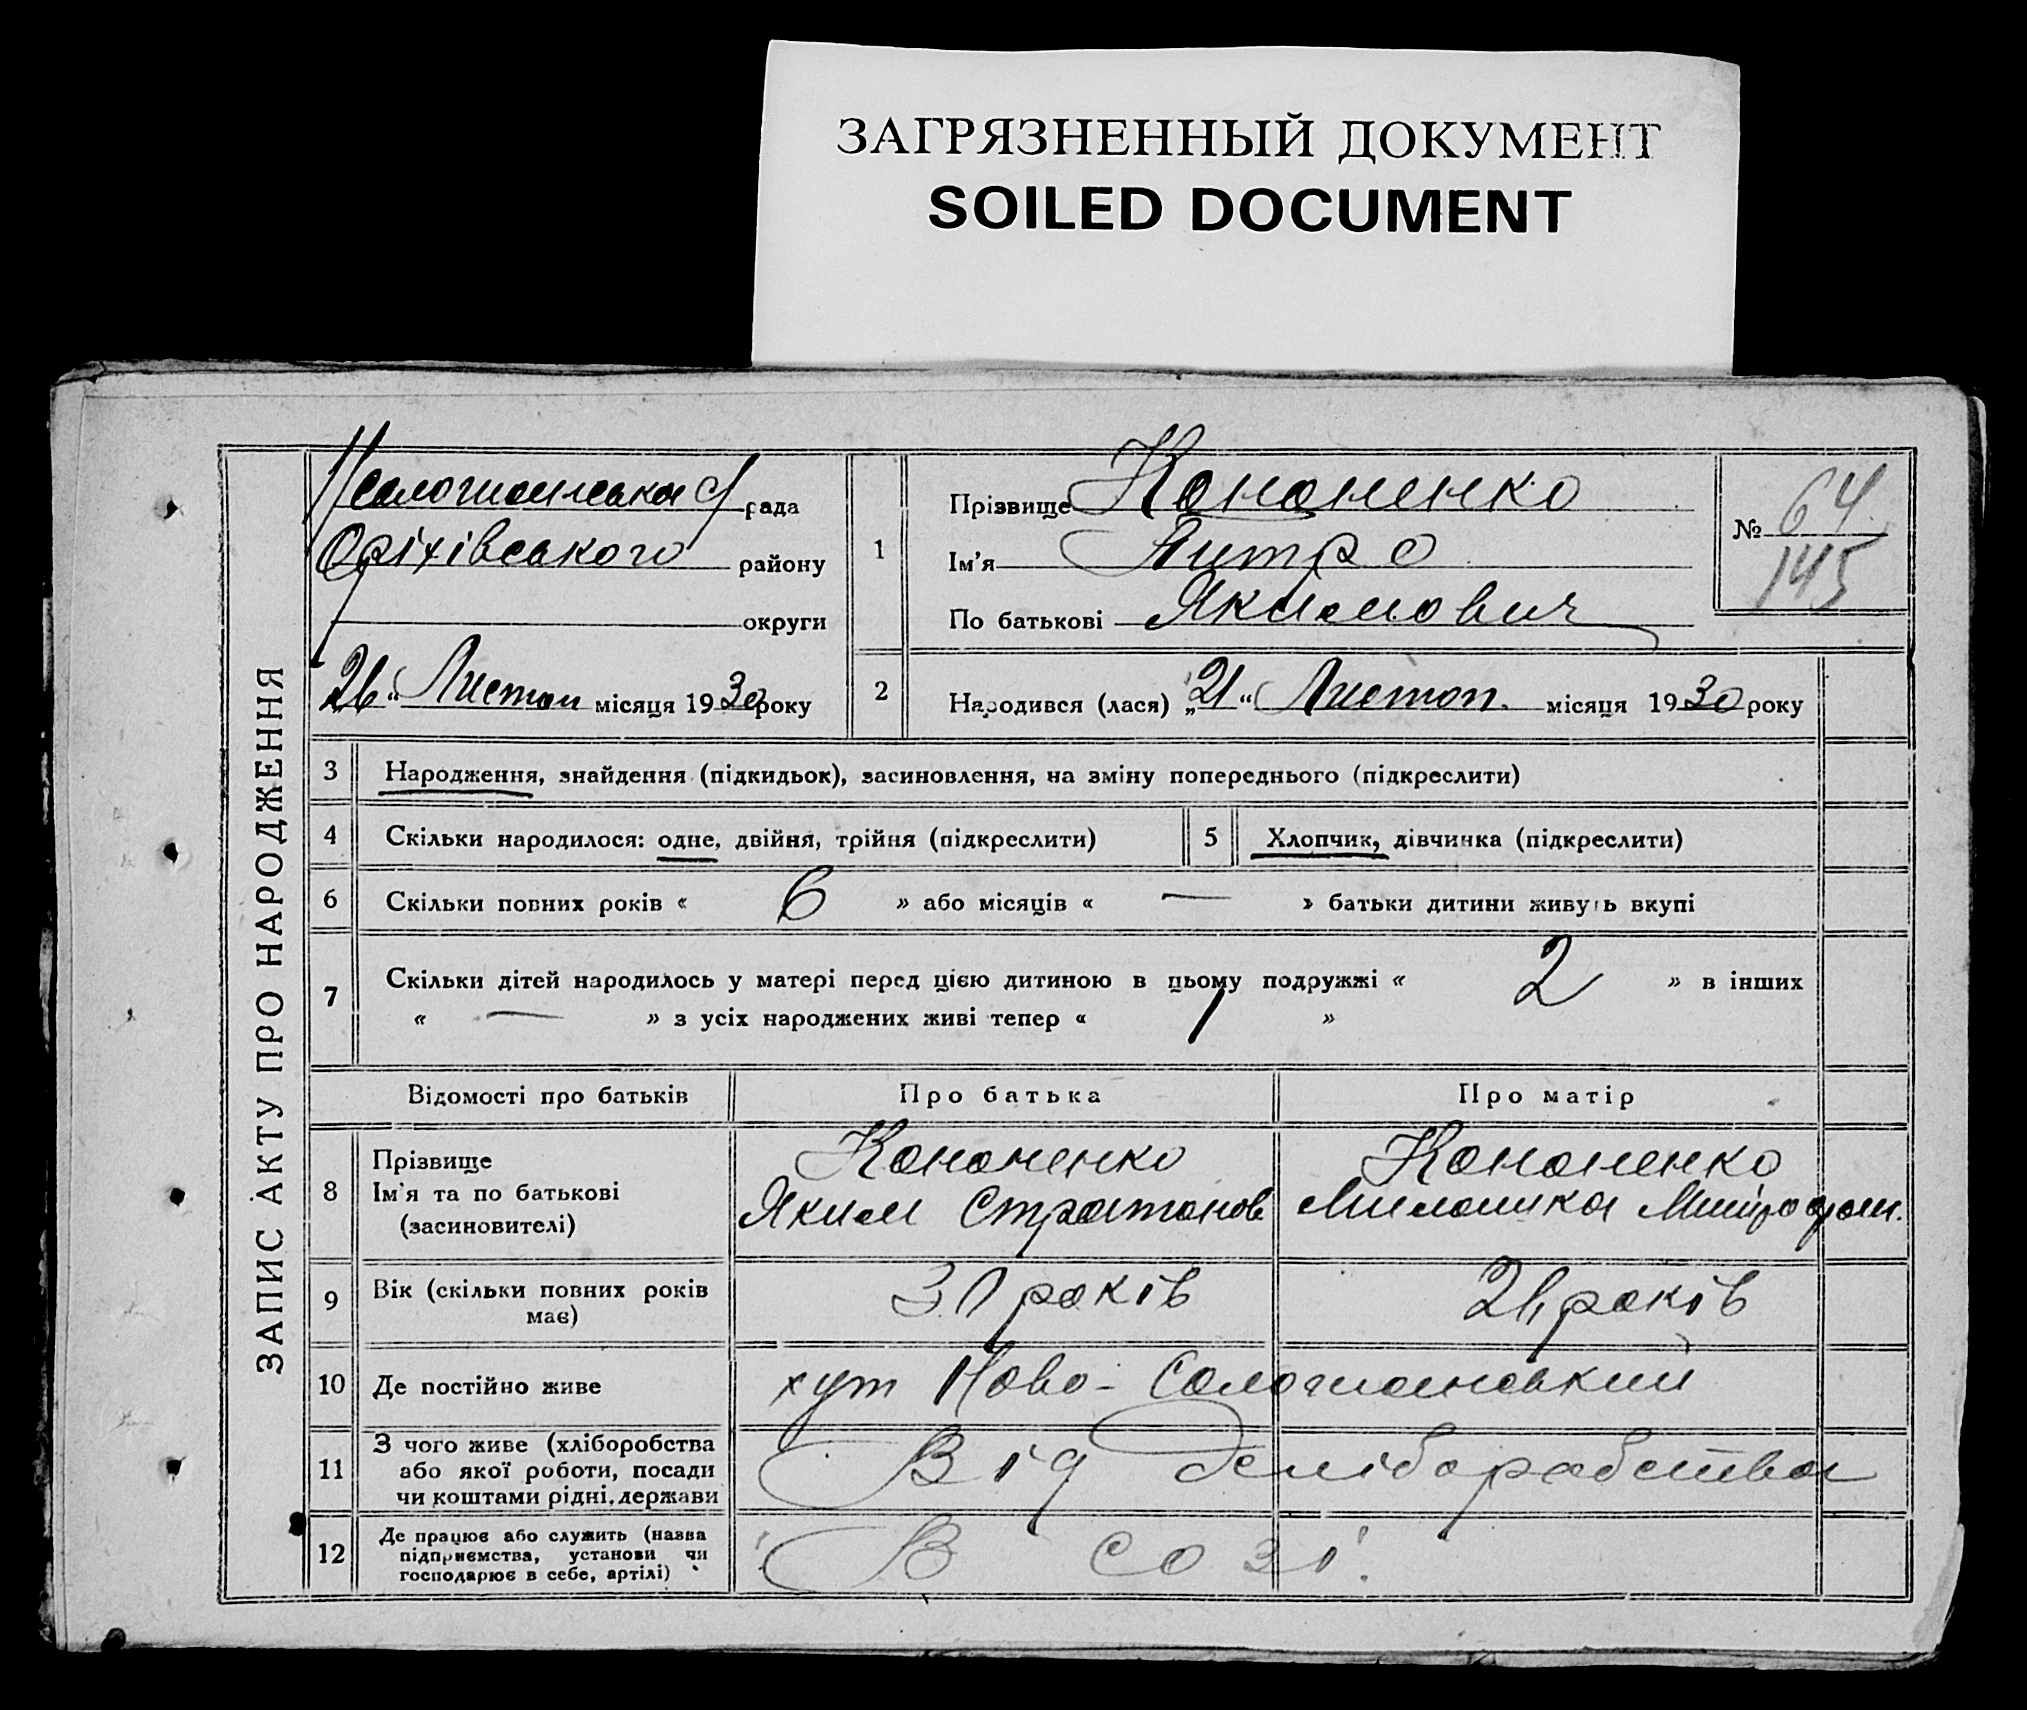 ЗАГРЯЗНЕННЫЙ ДОКУМЕНТ
SOILED DOCUMENT
ЗАПИС АКТУ ПРО НАРОДЖЕННЯ
рада
Оріхівського району
округи
26 “ Листоп місяця 1930 року
1
Прізвище Кононенко
Ім’я Питро
По батькові Якимович
№ 64
145
2
Народився (лася) „21 “ Листоп. місяця 1930 року
3 Народження, знайдення (підкидьок), засиновлення, на зміну попереднього (підкреслити)
4 Скільки народилося: одне, двійня, трійня (підкреслити)
5 Хлопчик, дівчинка (підкреслити)
6 Скільки повних років « 6 » або місяців « — » батьки дитини живуть вкупі
7 Скільки дітей народилось у матері перед цією дитиною в цьому подружжі « 2 » в інших
« — » з усіх народжених живі тепер « 1 »
Відомості про батьків Про батька Про матір
8 Прізвище
Ім’я та по батькові
(засиновителі)
Кононенко
Яким Стратонов
Кононенко
9 Вік (скільки повних років
має)
років
років
10 Де постійно живе хут Ново-Сологианський
11 З чого живе (хліборобства
або якої роботи, посади
чи коштами рідні, держави
Від хліборобства
12 Де працює або служить (назва
підприємства, установи чи
господарює в себе, артілі)
В созі